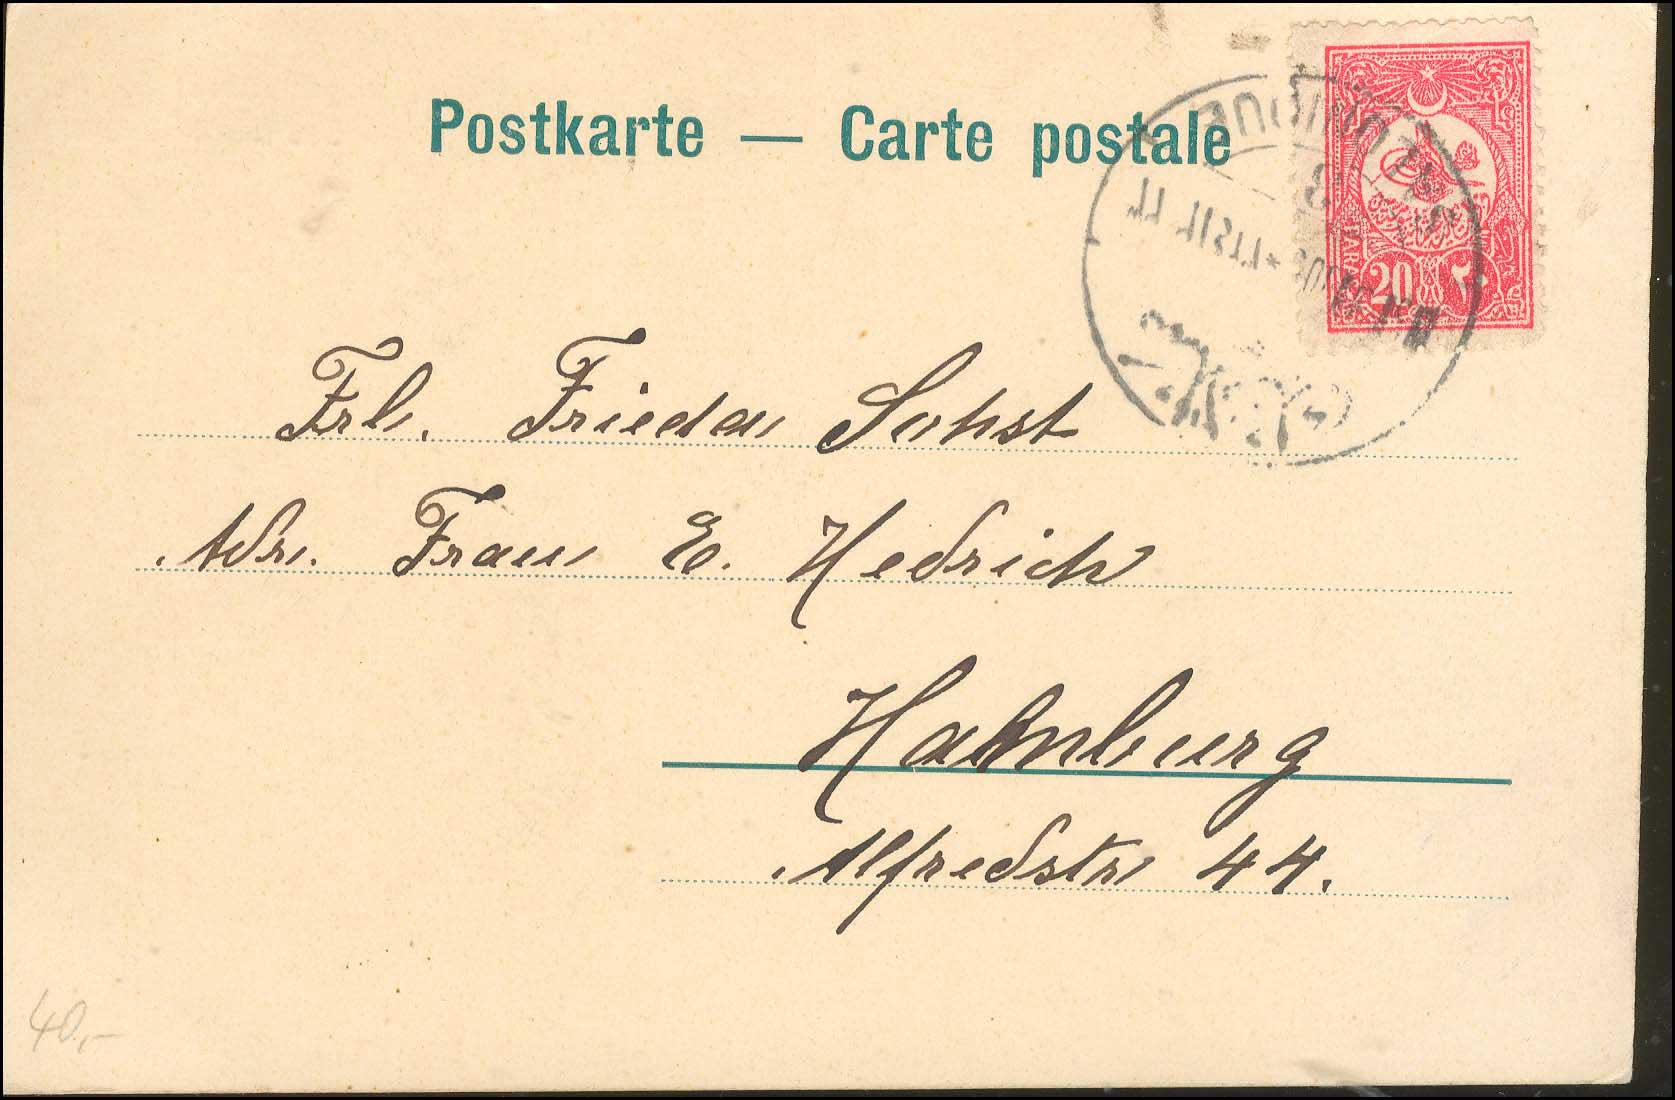 Postkarte — Carte postale
20
٢٠
Frl. Frieda Sohst
Adr. Frau E. Hedrich
Hamburg
Alfredstr 44.
40,-